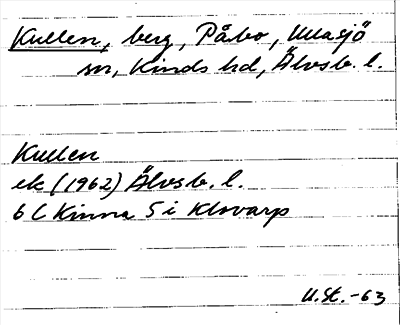 Kullen, berg, Påbo, Mlasjö
sn, Kinds hd, Älvsb. l.
Kullen
ek (1962) Älvsb. l.
6 C Kinna 5 i Klovarp
U.St. -63